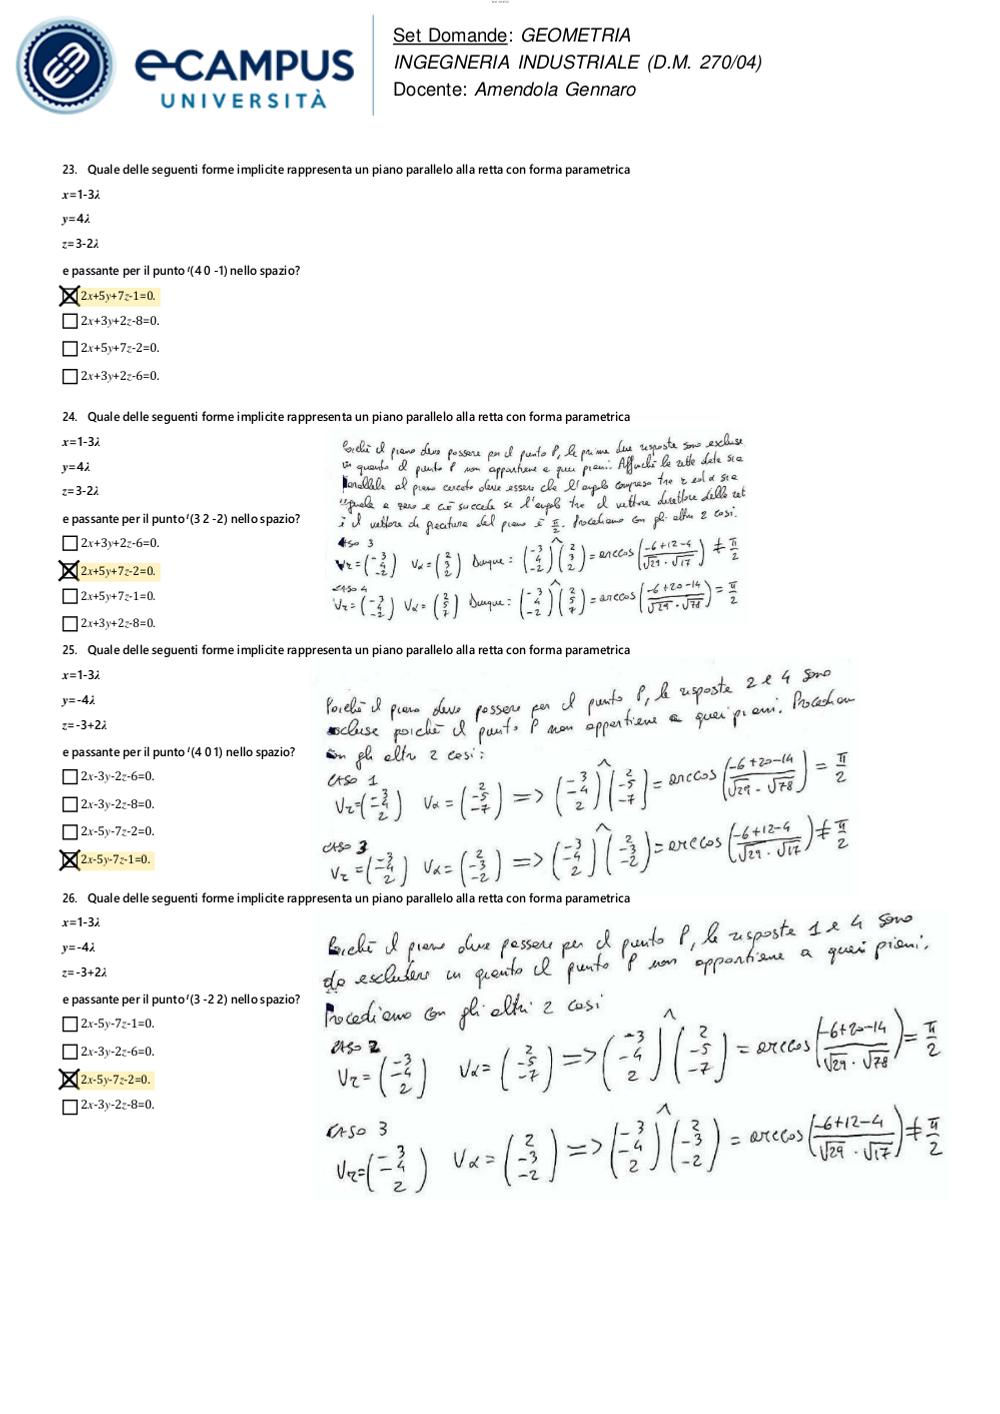 e-CAMPUS
UNIVERSITÀ
Set Domande: GEOMETRIA
INGEGNERIA INDUSTRIALE (D.M. 270/04)
Docente: Amendola Gennaro
23. Quale delle seguenti forme implicite rappresenta un piano parallelo alla retta con forma parametrica
x=1-3λ
y=4λ
z=3-2λ
e passante per il punto ᵗ(4 0 -1) nello spazio?
2x+5y+7z-1=0.
2x+3y+2z-8=0.
2x+5y+7z-2=0.
2x+3y+2z-6=0.
24. Quale delle seguenti forme implicite rappresenta un piano parallelo alla retta con forma parametrica
x=1-3λ
y=4λ
z=3-2λ
e passante per il punto ᵗ(3 2 -2) nello spazio?
2x+3y+2z-6=0.
2x+5y+7z-2=0.
2x+5y+7z-1=0.
2x+3y+2z-8=0.
Poiché il piano deve passare per il punto P, le prime due risposte sono escluse
in quanto il punto P non appartiene a quei piani. Affinché la retta data sia
parallela al piano cercato deve essere che l'angolo compreso tra r ed α sia
uguale a zero e ciò succede se l'angolo tra il vettore direttore della ret
e il vettore di giacitura del piano è π/2. Procediamo con gli altri 2 casi.
caso 3
Vr=(-3 4 -2) Vα=(2 3 2) Dunque: (-3 4 -2)^(2 3 2) = arccos(-6+12-4/√29·√17) ≠ π/2
caso 4
Vr=(-3 4 -2) Vα=(2 5 7) Dunque: (-3 4 -2)^(2 5 7) = arccos(-6+20-14/√29·√78) = π/2
25. Quale delle seguenti forme implicite rappresenta un piano parallelo alla retta con forma parametrica
x=1-3λ
y=-4λ
z=-3+2λ
e passante per il punto ᵗ(4 0 1) nello spazio?
2x-3y-2z-6=0.
2x-3y-2z-8=0.
2x-5y-7z-2=0.
2x-5y-7z-1=0.
Poiché il piano deve passare per il punto P, le risposte 2 e 4 sono
escluse poiché il punto P non appartiene a quei piani. Procediamo
con gli altri 2 casi:
CASO 1
Vr=(-3 -4 2) Vα=(2 -5 -7) => (-3 -4 2)^(2 -5 -7) = arccos(-6+20-14/√29-√78) = π/2
CASO 3
Vr=(-3 -4 2) Vα=(2 -3 -2) => (-3 -4 2)^(2 -3 -2) = arccos(-6+12-4/√29·√17) ≠ π/2
26. Quale delle seguenti forme implicite rappresenta un piano parallelo alla retta con forma parametrica
x=1-3λ
y=-4λ
z=-3+2λ
e passante per il punto ᵗ(3 -2 2) nello spazio?
2x-5y-7z-1=0.
2x-3y-2z-6=0.
2x-5y-7z-2=0.
2x-3y-2z-8=0.
Poiché il piano deve passare per il punto P, le risposte 1 e 4 sono
da escludere in quanto il punto P non appartiene a quei piani.
Procediamo con gli altri 2 casi
CASO 2
Vr=(-3 -4 2) Vα=(2 -5 -7) => (-3 -4 2)^(2 -5 -7) = arccos(-6+20-14/√29·√78) = π/2
CASO 3
Vr=(-3 -4 2) Vα=(2 -3 -2) => (-3 -4 2)^(2 -3 -2) = arccos(-6+12-4/√29·√17) ≠ π/2